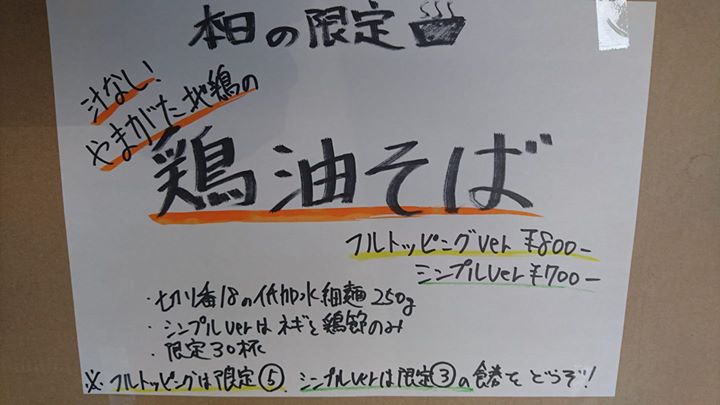 本日の限定
汁なし!
やまがた地鶏の
鶏油そば
フルトッピングver ¥800-
シンプルver ¥700-
・切り番18の低加水細麺 250g
・シンプルverはネギと鶏節のみ
・限定30杯
※フルトッピングは限定⑤、シンプルverは限定③の食券をどうぞ!